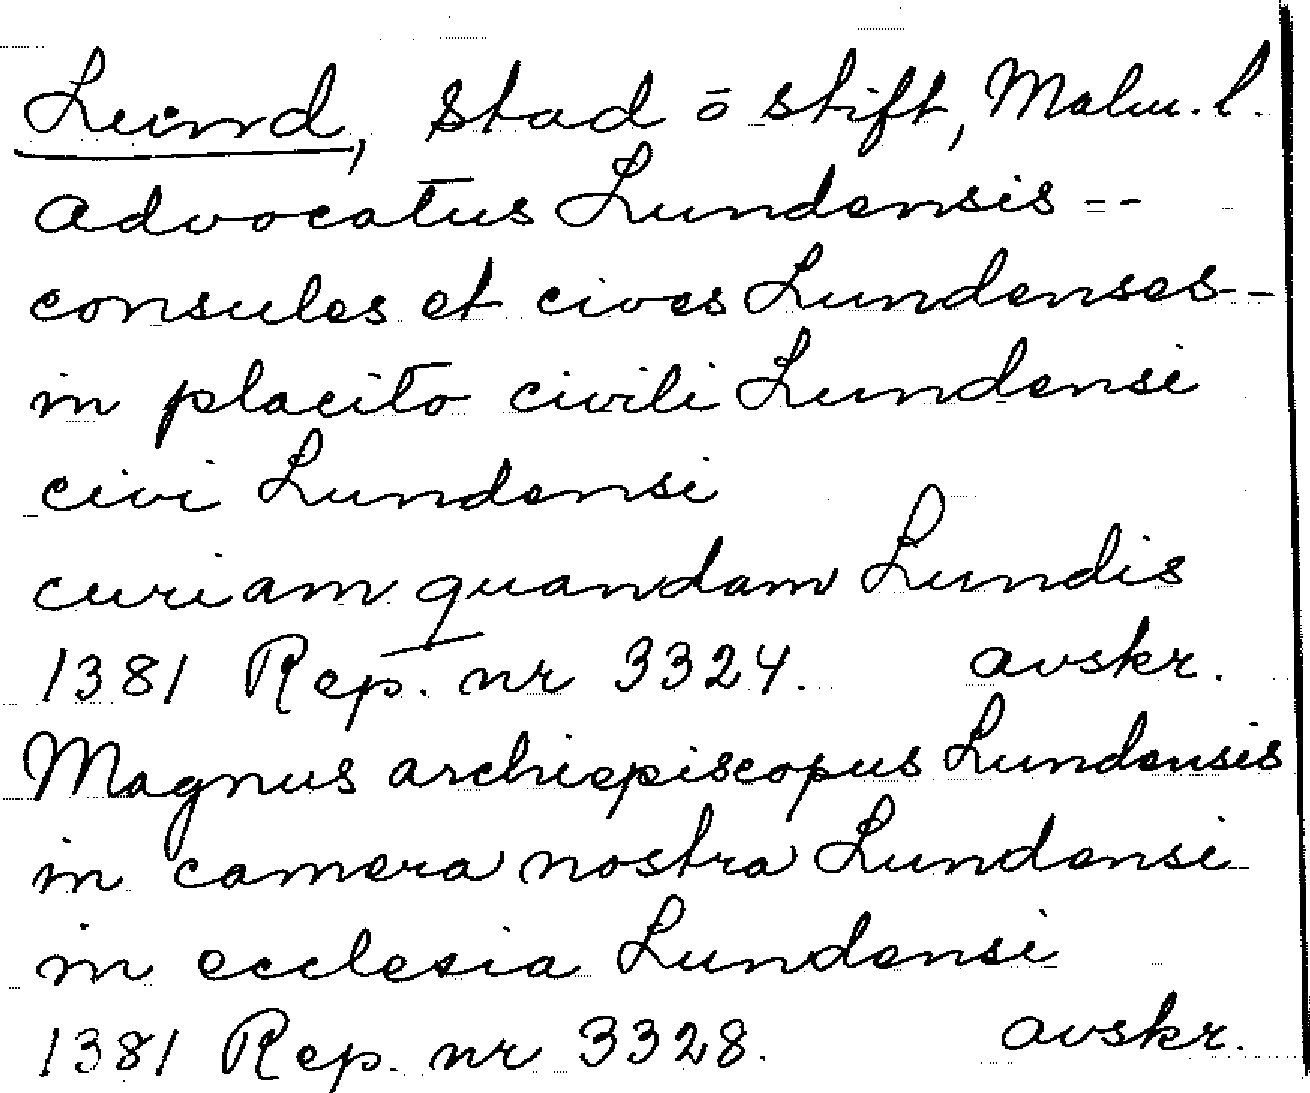 Lund, stad o stift, Malm. l.
Advocatus Lundensis --
consules et cives Lundenses --
in placito civili Lundensi
civi Lundensi
curiam quandam Lundis
1381 Rep. nr 3324. avskr.
Magnus archiepiscopus Lundensis
in camera nostra Lundensi
in ecclesia Lundensi
1381 Rep. nr 3328. avskr.